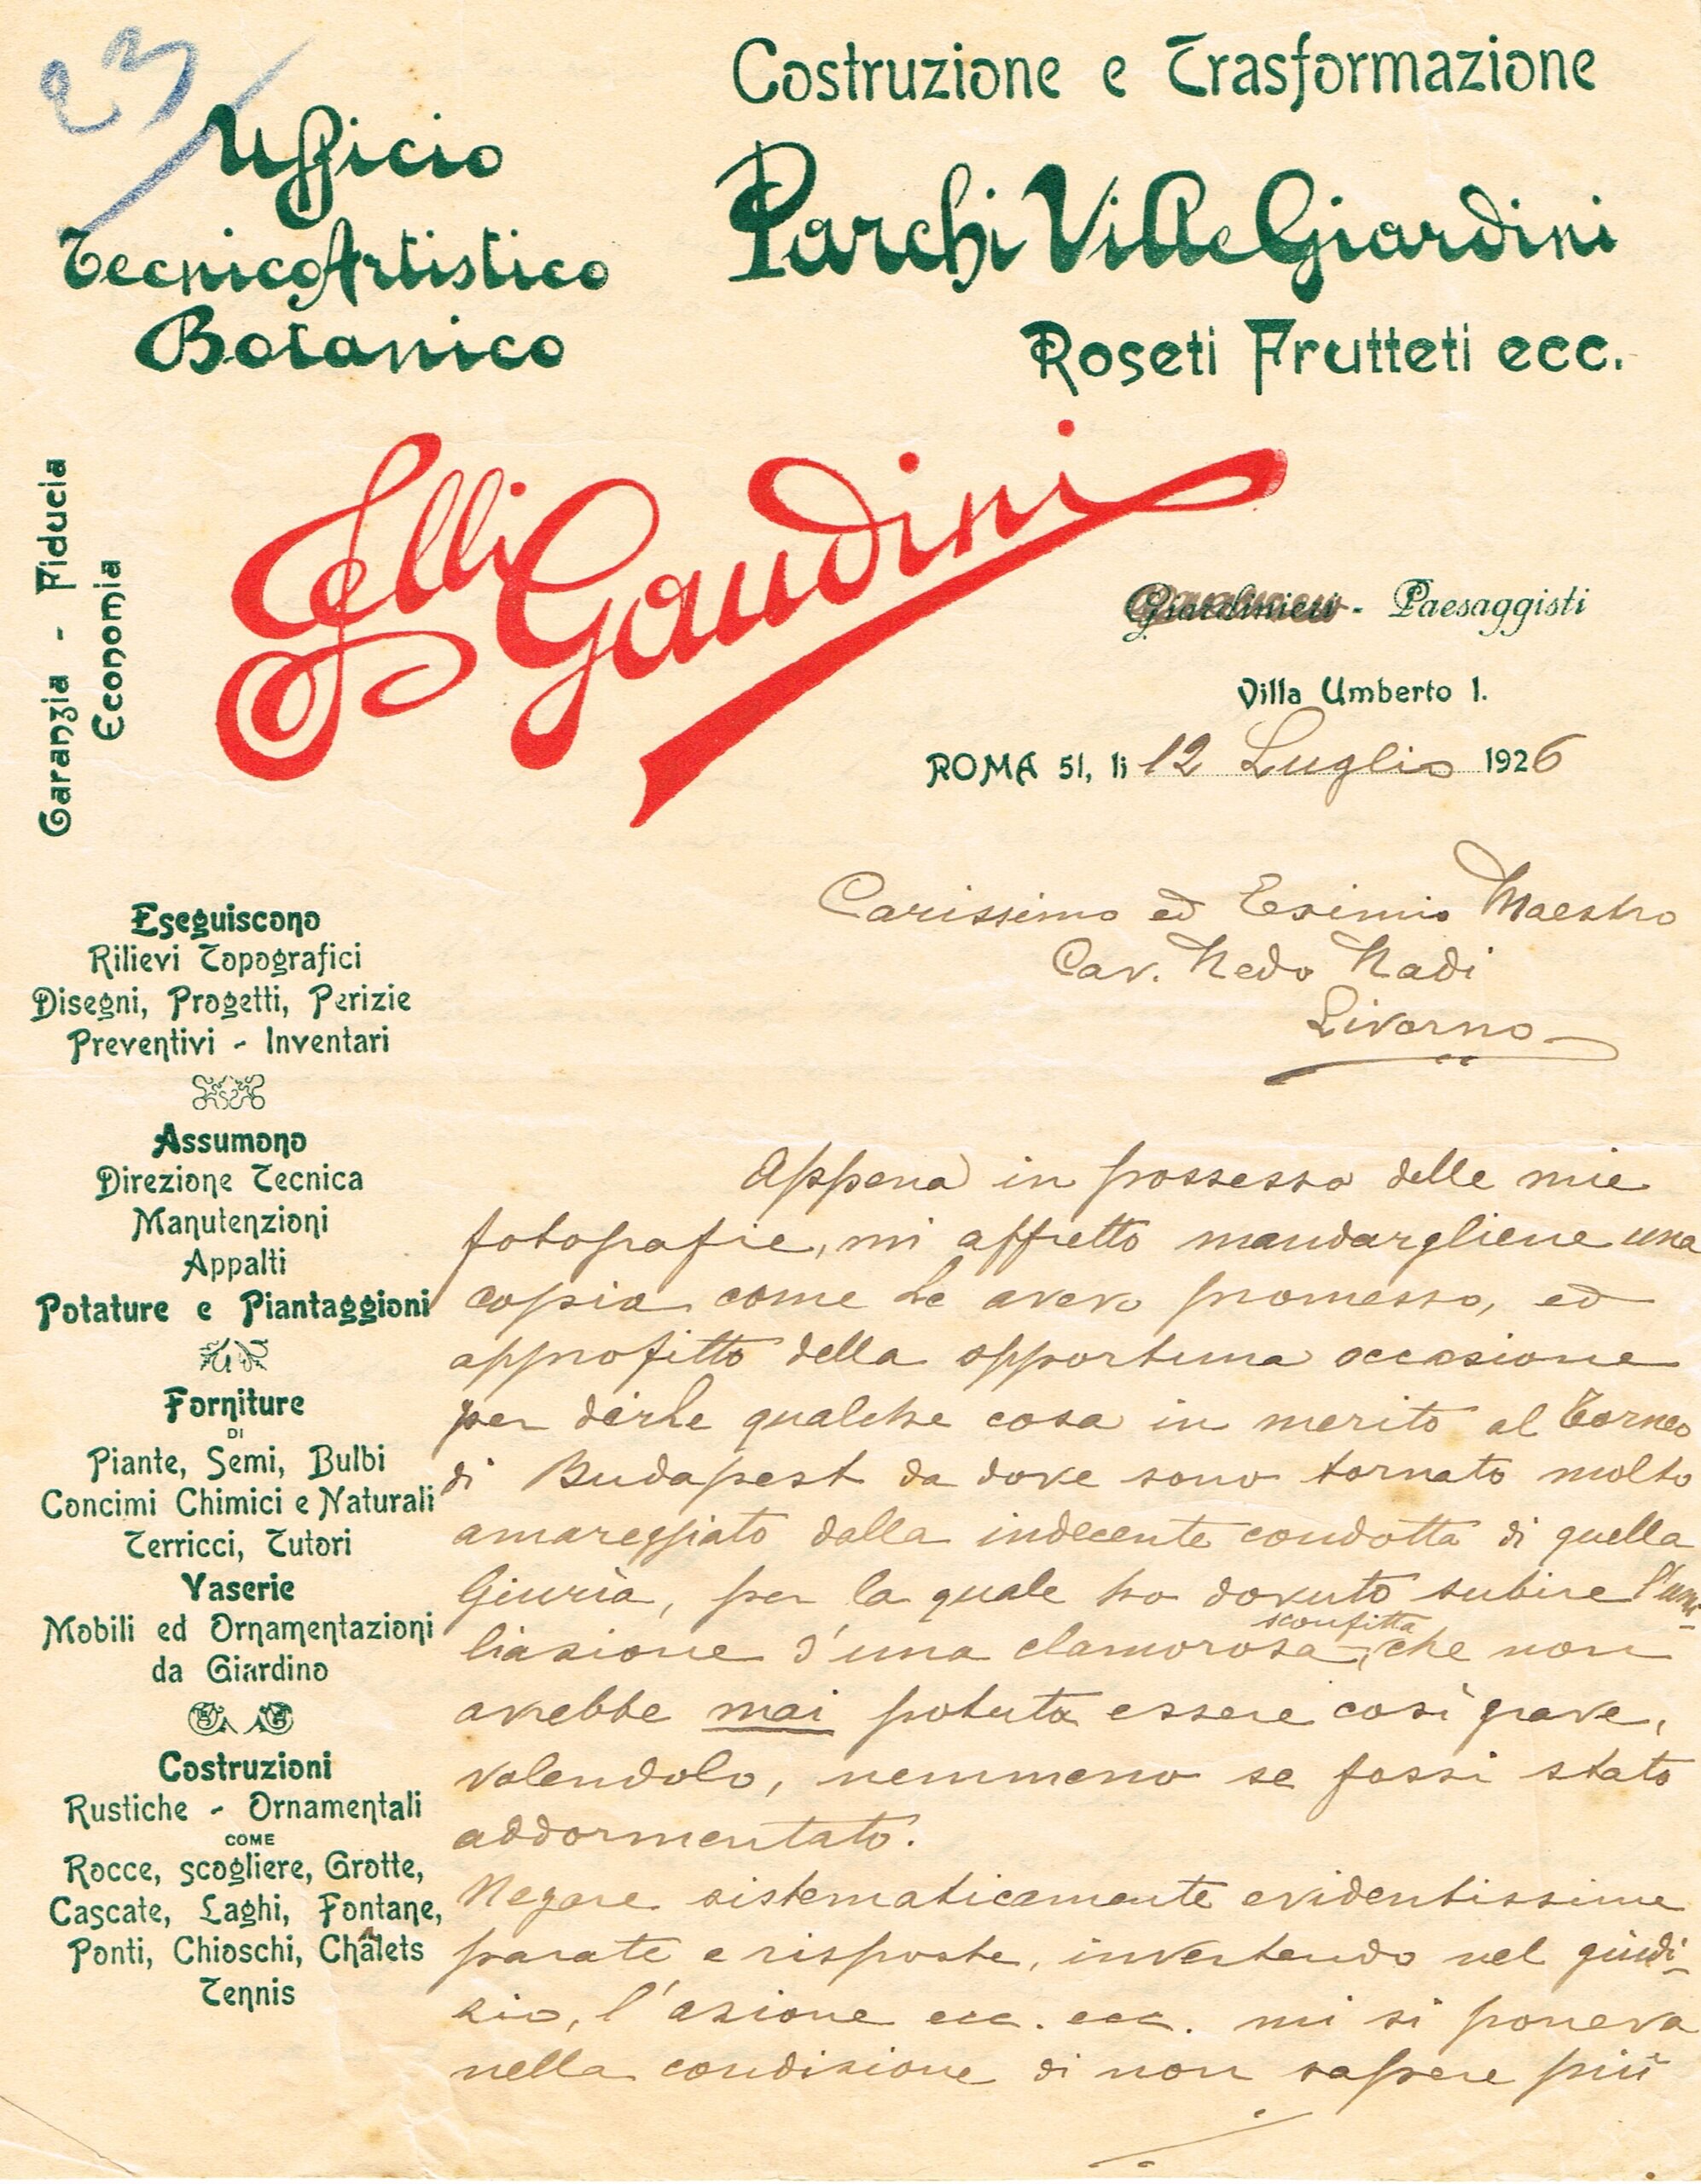 23
Ufficio
Tecnico Artistico
Botanico
Costruzione e Trasformazione
Parchi Ville Giardini
Roseti Frutteti ecc.
Garanzia - Fiducia
Economia
Flli Gaudini
Giardinieri - Paesaggisti
Villa Umberto I.
ROMA 51, li 12 Luglio 1926
Carissimo ed Esimio Maestro
Cav. Nedo Nadi
Livorno
Eseguiscono
Rilievi Topografici
Disegni, Progetti, Perizie
Preventivi - Inventari
Assumono
Direzione Tecnica
Manutenzioni
Appalti
Potature e Piantaggioni
Forniture
DI
Piante, Semi, Bulbi
Concimi Chimici e Naturali
Terricci, Tutori
Vaserie
Mobili ed Ornamentazioni
da Giardino
Costruzioni
Rustiche - Ornamentali
COME
Rocce, scogliere, Grotte,
Cascate, Laghi, Fontane,
Ponti, Chioschi, Châlets
Tennis
Appena in possesso delle mie
fotografie, mi affretto mandargliene una
copia come Le avevo promesso, ed
approfitto della opportuna occasione
per dirLe qualche cosa in merito al Torneo
di Budapest da dove sono tornato molto
amareggiato dalla indecente condotta di quella
Giuria, per la quale ho dovuto subire l'umi-
liazione d'una clamorosa sconfitta, che non
avrebbe mai potuto essere così grave,
volendolo, nemmeno se fossi stato
addormentato.
Negare sistematicamente evidentissime
parate e risposte, invertendo nel giudi-
zio, l'azione ecc. ecc. mi si poneva
nella condizione di non sapere più